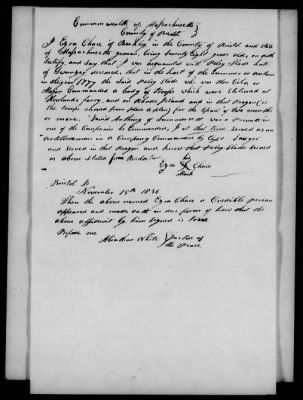 Commonwealth of Massachusetts
County of Bristol
I Ezra Chace of Berkley in the County of Bristol and State
of Massachusetts yeoman, being Seventy Eight years old, on oath
testify, and say that I was acquainted with Peleg Slade late
of Swanzey deceased, that in the last of the Summer or autumn
in the year 1777 the said Peleg Slade who was then Colo, or
Major Commanded a body of Troops which were stationed at
Howlands ferry, and on Rhode Island and in that Region
the Troops stared from place to place for the space of two months
or more. David Anthony of Summersett was a Private in
one of the Companies he Commanded, I at that time served as an
Artilleryman in a Company Commanded by Capt
and served in that Region and knew that Peleg Slade served
as above stated
his
Ezra X Chace
Mark
Bristol Ss
November 15th 1836
Then the above named Ezra Chace a Credible person
appeared and made oath in due form of law that the
above affidavit by him Signed is true
Before me
White Justice of
the Peace